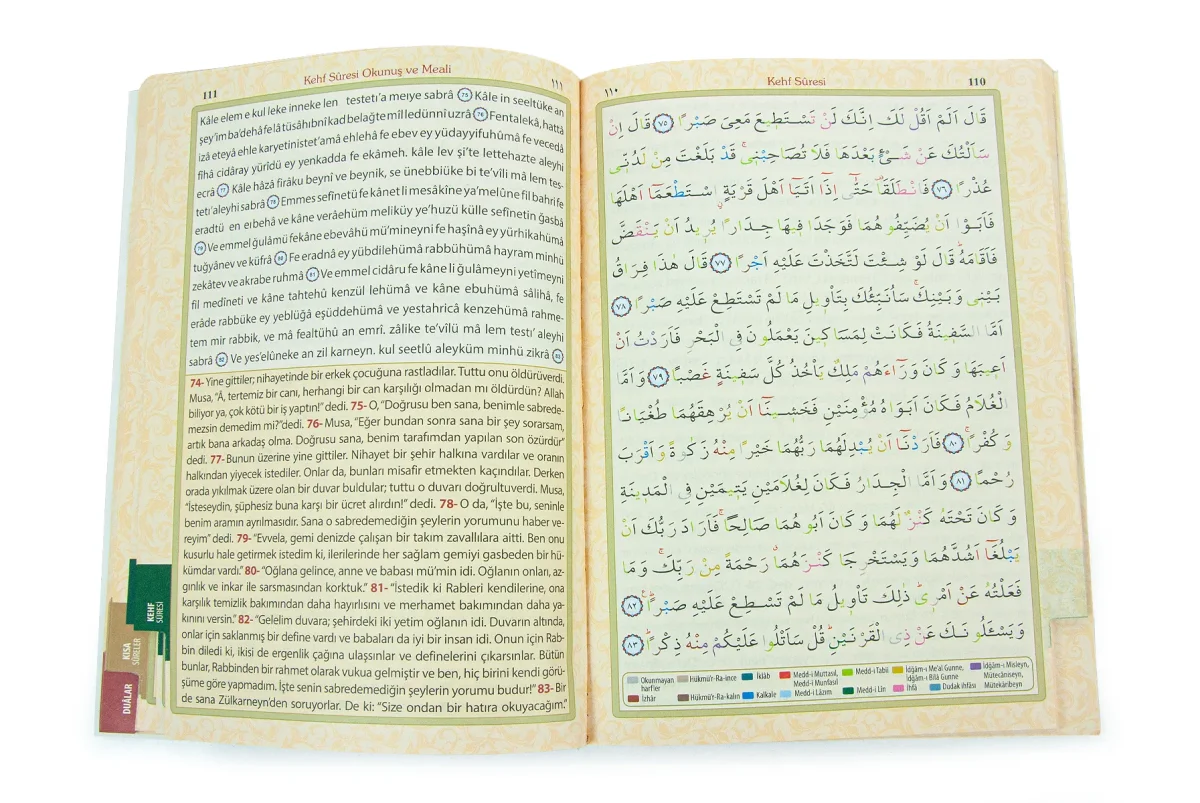 Kehf Sûresi
110
١١٠
قَالَ اَلَمْ اَقُلْ لَكَ اِنَّكَ لَنْ تَسْتَطٖيعَ مَعِيَ صَبْرًا ﴿٧٥﴾ قَالَ اِنْ
سَاَلْتُكَ عَنْ شَیْءٍ بَعْدَهَا فَلَا تُصَاحِبْنٖیۚ قَدْ بَلَغْتَ مِنْ لَدُنّٖی
عُذْرًا ﴿٧٦﴾ فَانْطَلَقَاࣞ حَتّٰٓی اِذَٓا اَتَيَٓا اَهْلَ قَرْيَةٍۨ اسْتَطْعَمَٓا اَهْلَهَا
فَاَبَوْا اَنْ يُضَيِّفُوهُمَا فَوَجَدَا فٖيهَا جِدَارًا يُرٖيدُ اَنْ يَنْقَضَّ
فَاَقَامَهُؕ قَالَ لَوْ شِئْتَ لَتَّخَذْتَ عَلَيْهِ اَجْرًا ﴿٧٧﴾ قَالَ هٰذَا فِرَاقُ
بَيْنٖی وَبَيْنِكَۚ سَاُنَبِّئُكَ بِتَاْوٖيلِ مَا لَمْ تَسْتَطِعْ عَلَيْهِ صَبْرًا ﴿٧٨﴾
اَمَّا السَّفٖينَةُ فَكَانَتْ لِمَسَاكٖينَ يَعْمَلُونَ فِی الْبَحْرِ فَاَرَدْتُ اَنْ
اَعٖيبَهَا وَكَانَ وَرَٓاءَهُمْ مَلِكٌ يَاْخُذُ كُلَّ سَفٖينَةٍ غَصْبًا ﴿٧٩﴾ وَاَمَّا
الْغُلَامُ فَكَانَ اَبَوَاهُ مُؤْمِنَيْنِ فَخَشٖينَٓا اَنْ يُرْهِقَهُمَا طُغْيَانًا
وَكُفْرًاۚ ﴿٨٠﴾ فَاَرَدْنَٓا اَنْ يُبْدِلَهُمَا رَبُّهُمَا خَيْرًا مِنْهُ زَكٰوةً وَاَقْرَبَ
رُحْمًا ﴿٨١﴾ وَاَمَّا الْجِدَارُ فَكَانَ لِغُلَامَيْنِ يَتٖيمَيْنِ فِی الْمَدٖينَةِ
وَكَانَ تَحْتَهُ كَنْزٌ لَهُمَا وَكَانَ اَبُوهُمَا صَالِحًاۚ فَاَرَادَ رَبُّكَ اَنْ
يَبْلُغَٓا اَشُدَّهُمَا وَيَسْتَخْرِجَا كَنْزَهُمَاۗ رَحْمَةً مِنْ رَبِّكَۚ وَمَا
فَعَلْتُهُ عَنْ اَمْرٖیؕ ذٰلِكَ تَاْوٖيلُ مَا لَمْ تَسْطِعْ عَلَيْهِ صَبْرًاؕ ﴿٨٢﴾
وَيَسْـَٔلُونَكَ عَنْ ذِی الْقَرْنَيْنِؕ قُلْ سَاَتْلُوا عَلَيْكُمْ مِنْهُ ذِكْرًاؕ ﴿٨٣﴾
Okunmayan harfler
Hükmü'r-Ra-ince
İklâb
Medd-i Muttasıl, Medd-i Munfasıl
Medd-i Tabiî
İdğâm-ı Me'al Gunne, İdğâm-ı Bilâ Gunne
İdğâm-ı Misleyn, Mütecâniseyn, Mütekâribeyn
İzhâr
Hükmü'r-Ra-kalın
Kalkale
Medd-i Lâzım
Medd-i Lîn
İhfâ
Dudak ihfâsı
111
Kehf Sûresi Okunuş ve Meali
١١١
Kâle elem e kul leke inneke len testetı'a meıye sabrâ 75 Kâle in seeltüke an
şey'im ba'dehâ fe lâ tüsâhıbnî kad belağte mil ledünnî uzrâ 76 Fentalekâ, hattâ
izâ eteyâ ehle karyetinistet'amâ ehlehâ fe ebev ey yüdayyifuhümâ fe vecedâ
fîhâ cidâray yürîdü ey yenkadda fe ekâmeh. kâle lev şi'te lettehazte aleyhi
ecrâ 77 Kâle hâzâ firâku beynî ve beynik, se ünebbiüke bi te'vîli mâ lem tes-
tetı' aleyhi sabrâ 78 Emmes sefînetü fe kânet li mesâkîne ya'melûne fil bahri fe
eradtü en eıbehâ ve kâne verâehüm meliküy ye'huzü külle sefînetin ğasbâ
79 Ve emmel ğulâmü fe kâne ebevâhü mü'mineyni fe haşînâ ey yürhikahümâ
tuğyânev ve küfrâ 80 Fe eradnâ ey yübdilehümâ rabbühümâ hayram minhü
zekâtev ve akrabe ruhmâ 81 Ve emmel cidâru fe kâne li ğulâmeyni yetîmeyni
fil medîneti ve kâne tahtehû kenzül lehümâ ve kâne ebuhümâ sâlihâ, fe
erâde rabbüke ey yeblüğâ eşüddehümâ ve yestahricâ kenzehümâ rahme-
tem mir rabbik, ve mâ fealtühû an emrî. zâlike te'vîlü mâ lem testı' aleyhi
sabrâ 82 Ve yes'elûneke an zil karneyn. kul seetlû aleyküm minhü zikrâ 83
74- Yine gittiler; nihayetinde bir erkek çocuğuna rastladılar. Tuttu onu öldürüverdi.
Musa, “Â, tertemiz bir canı, herhangi bir can karşılığı olmadan mı öldürdün? Allah
biliyor ya, çok kötü bir iş yaptın!” dedi. 75- O, “Doğrusu ben sana, benimle sabrede-
mezsin demedim mi?” dedi. 76- Musa, “Eğer bundan sonra sana bir şey sorarsam,
artık bana arkadaş olma. Doğrusu sana, benim tarafımdan yapılan son özürdür”
dedi. 77- Bunun üzerine yine gittiler. Nihayet bir şehir halkına vardılar ve oranın
halkından yiyecek istediler. Onlar da, bunları misafir etmekten kaçındılar. Derken
orada yıkılmak üzere olan bir duvar buldular; tuttu o duvarı doğrultuverdi. Musa,
“İsteseydin, şüphesiz buna karşı bir ücret alırdın!” dedi. 78- O da, “İşte bu, seninle
benim aramın ayrılmasıdır. Sana o sabredemediğin şeylerin yorumunu haber ve-
reyim” dedi. 79- “Evvela, gemi denizde çalışan bir takım zavallılara aitti. Ben onu
kusurlu hale getirmek istedim ki, ilerilerinde her sağlam gemiyi gasbeden bir hü-
kümdar vardı.” 80- “Oğlana gelince, anne ve babası mü'min idi. Oğlanın onları, az-
gınlık ve inkar ile sarsmasından korktuk.” 81- “İstedik ki Rableri kendilerine, ona
karşılık temizlik bakımından daha hayırlısını ve merhamet bakımından daha ya-
kınını versin.” 82- “Gelelim duvara; şehirdeki iki yetim oğlanın idi. Duvarın altında,
onlar için saklanmış bir define vardı ve babaları da iyi bir insan idi. Onun için Rab-
bin diledi ki, ikisi de ergenlik çağına ulaşsınlar ve definelerini çıkarsınlar. Bütün
bunlar, Rabbinden bir rahmet olarak vukua gelmiştir ve ben, hiç birini kendi görü-
şüme göre yapmadım. İşte senin sabredemediğin şeylerin yorumu budur!” 83- Bir
de sana Zülkarneyn'den soruyorlar. De ki: “Size ondan bir hatıra okuyacağım.”
KEHF
SÛRESİ
KISA
SÛRELER
DUÂLAR